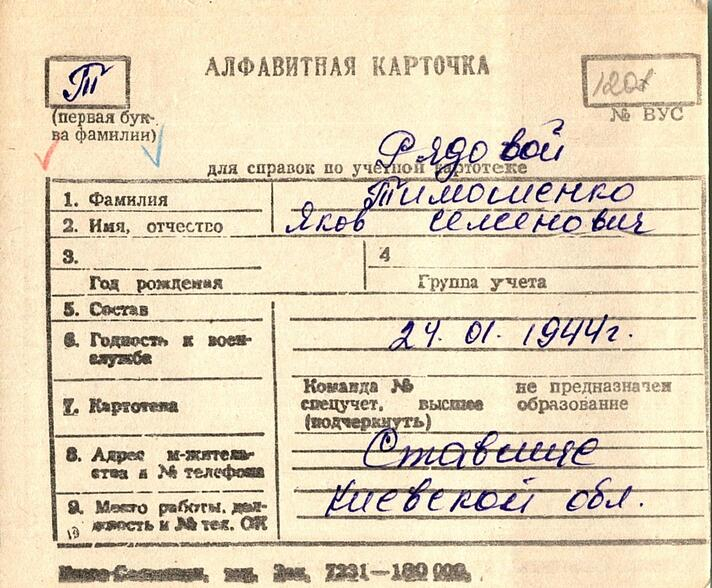 АЛФАВИТНАЯ КАРТОЧКА
Т
(первая бук-
ва фамилии)
№ ВУС
Рядовой
для справок по учетной картотеке
1. Фамилия Тимошенко
2. Имя, отчество Яков Семенович
3. 4
Год рождения Группа учета
5. Состав
6. Годность к воен-
службе
24. 01. 1944г.
7. Картотека
Команда № не предназначен
спецучет, высшее образование
(подчеркнуть)
8. Адрес м-житель-
ства и № телефона
Ставище
9. Место работы, дол-
жность и № тел. ОК
Киевской обл.
19
Зак. 7231—180 000.